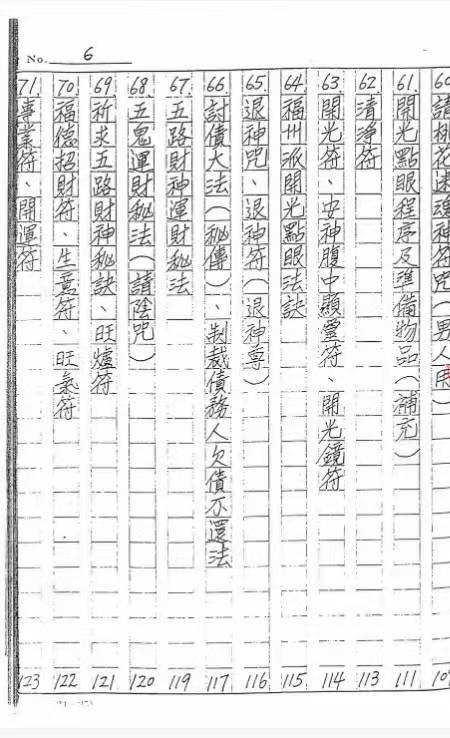 No. 6
60. 請桃花迷魂神符咒(男人用) 10
61. 開光點眼程序及準備物品(補充) 111
62. 清淨符 113
63. 開光符、安神腹中顯靈符、開光鏡符 114
64. 福州派開光點眼法訣 115
65. 退神咒、退神符(退神尊) 116
66. 討債大法(秘傳)、制裁債務人欠債不還法 117
67. 五路財神運財秘法 119
68. 五鬼運財秘法(請陰咒) 120
69. 祈求五路財神秘訣、旺爐符 121
70. 福德招財符、生意符、旺氣符 122
71. 事業符、開運符 123